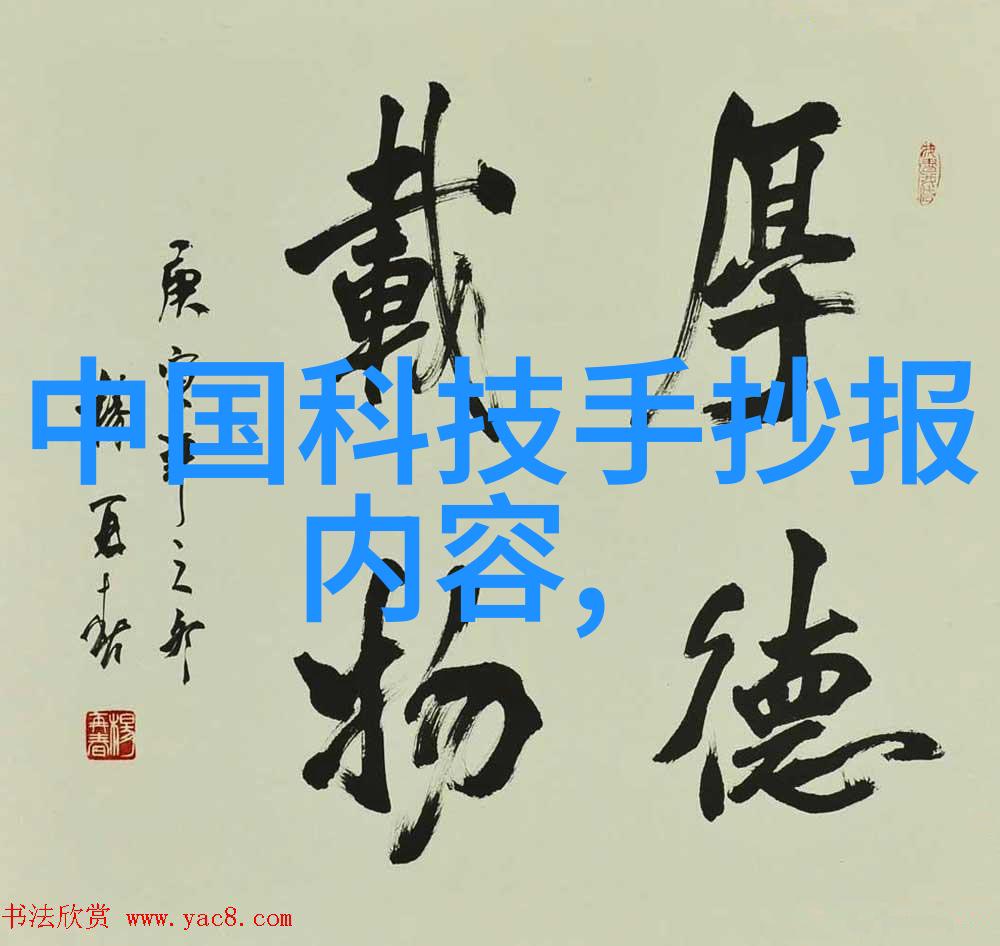 厚德
載物
庚寅年之那
楊再春
中国科技手抄报
内容,
书法欣赏 www.yac8.com